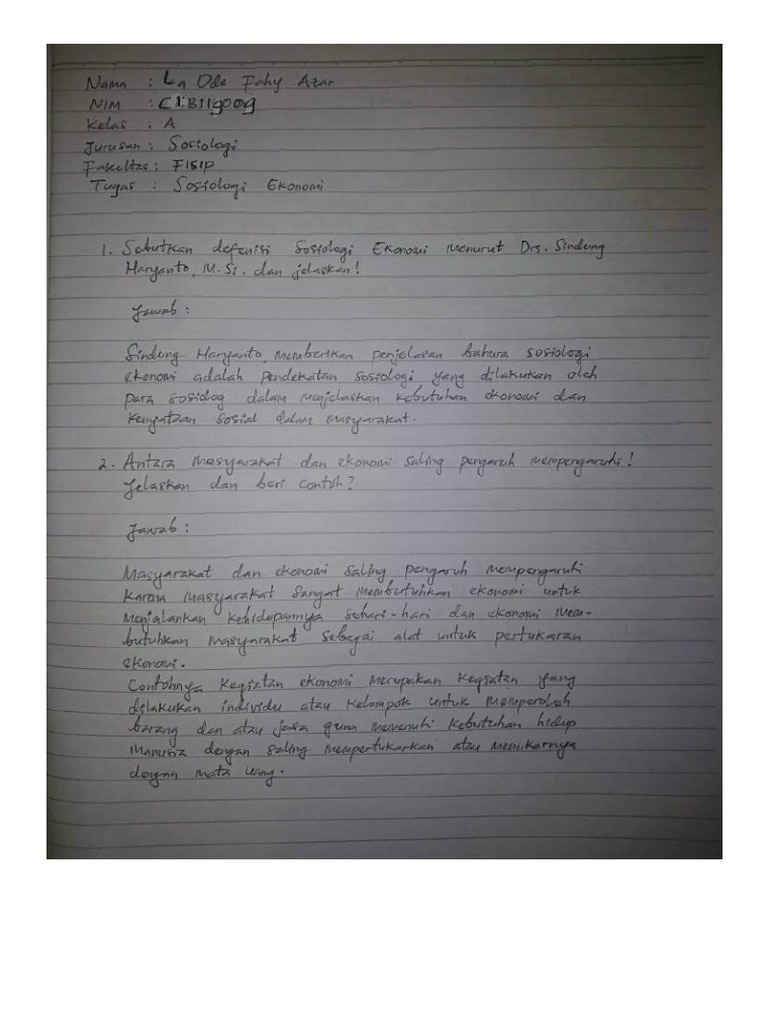 Nama : La Ode Fahy Azar
NIM : C1B119009
Kelas : A
Jurusan : Sosiologi
Fakultas : FISIP
Tugas : Sosiologi Ekonomi
1. Sebutkan defenisi Sosiologi Ekonomi Menurut Drs. Sindung
Haryanto, M.Si. dan jelaskan!
Jawab :
Sindung Haryanto, memberikan penjelasan bahwa sosiologi
ekonomi adalah pendekatan sosiologi yang dilakukan oleh
para sosiolog dalam menjelaskan kebutuhan ekonomi dan
kenyataan sosial dalam masyarakat.
2. Antara masyarakat dan ekonomi saling pengaruh mempengaruhi!
Jelaskan dan beri contoh?
Jawab :
Masyarakat dan ekonomi saling pengaruh mempengaruhi
karena masyarakat sangat membutuhkan ekonomi untuk
menjalankan kehidupannya sehari-hari dan ekonomi mem-
butuhkan masyarakat sebagai alat untuk pertukaran
ekonomi.
Contohnya kegiatan ekonomi merupakan kegiatan yang
dilakukan individu atau kelompok untuk memperoleh
barang dan atau jasa guna memenuhi kebutuhan hidup
manusia dengan saling mempertukarkan atau menukarnya
dengan mata uang.